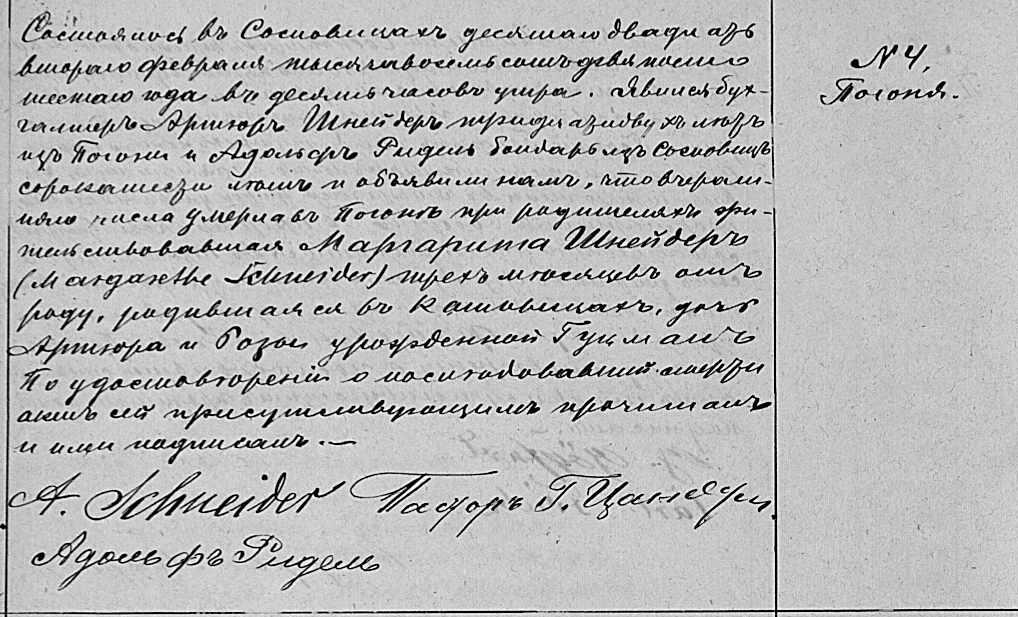 Состоялось въ Сосновицахъ десятаго двадцать
втораго февраля тысяча восемьсотъ девяносто
шестаго года въ десять часовъ утра. Явился бух-
галтеръ Артюръ Шнейдеръ тридцати двухъ лѣтъ
изъ Погони и Адольфъ Ридель бондарь изъ Сосновицъ
сорока шести лѣтъ и объявили намъ, что вчераш-
няго числа умерла въ Погонѣ при родителяхъ жи-
тельствовавшая Маргарита Шнейдеръ
(Margarethe Schneider) трехъ мѣсяцевъ отъ
роду, родившаяся въ Катовицахъ, дочь
Артюра и Розы урожденной Гутманъ
По удостовѣреніи о послѣдовавшей смерти
актъ сей присутствующимъ прочитанъ
и ими подписанъ. —
A. Schneider Пасторъ Г.
Адольфъ Ридель
N 4.
Погоня.